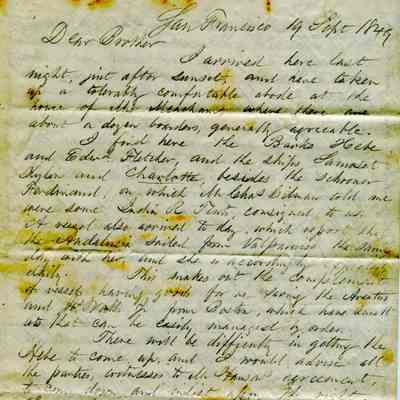 San Francisco 19 Sept 1849
Dear Brother
I arrived here last
night, just after sunset, and have taken
up a tolerably comfortable abode at the
house of Mr where there are
about a dozen boarders, generally agreeable.
I find here the Barks Hebe
and Edwd. Fletcher, and the ships Samoset
Xylon and Charlotte, besides the schooner
Ferdinand, on which Mr Chas told me
were some India R. Tents, consigned to us.
A vessel also arrived to day, which reports that
the Andalusia sailed from Valparaiso the same
day with her, and she is accordingly
daily. This makes out the complement
of vessels having goods for us saving the
and from Boston, which have small
lots that can be easily managed of order.
There will be difficulty in getting the
Hebe to come up, and I would advise all
the parties, witnesses to Mr agreement,
to come down, and insist upon the right